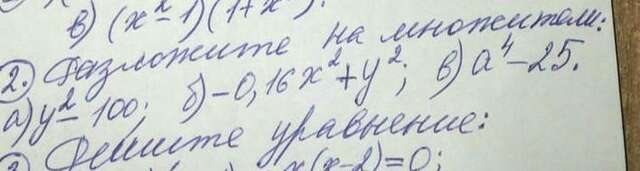 в) (x² - 1)(1 + x
2. Разложите на множители:
а) y² - 100; б) -0,16x² + y²; в) a⁴ - 25.
Решите уравнение:
x(x-2)=0;